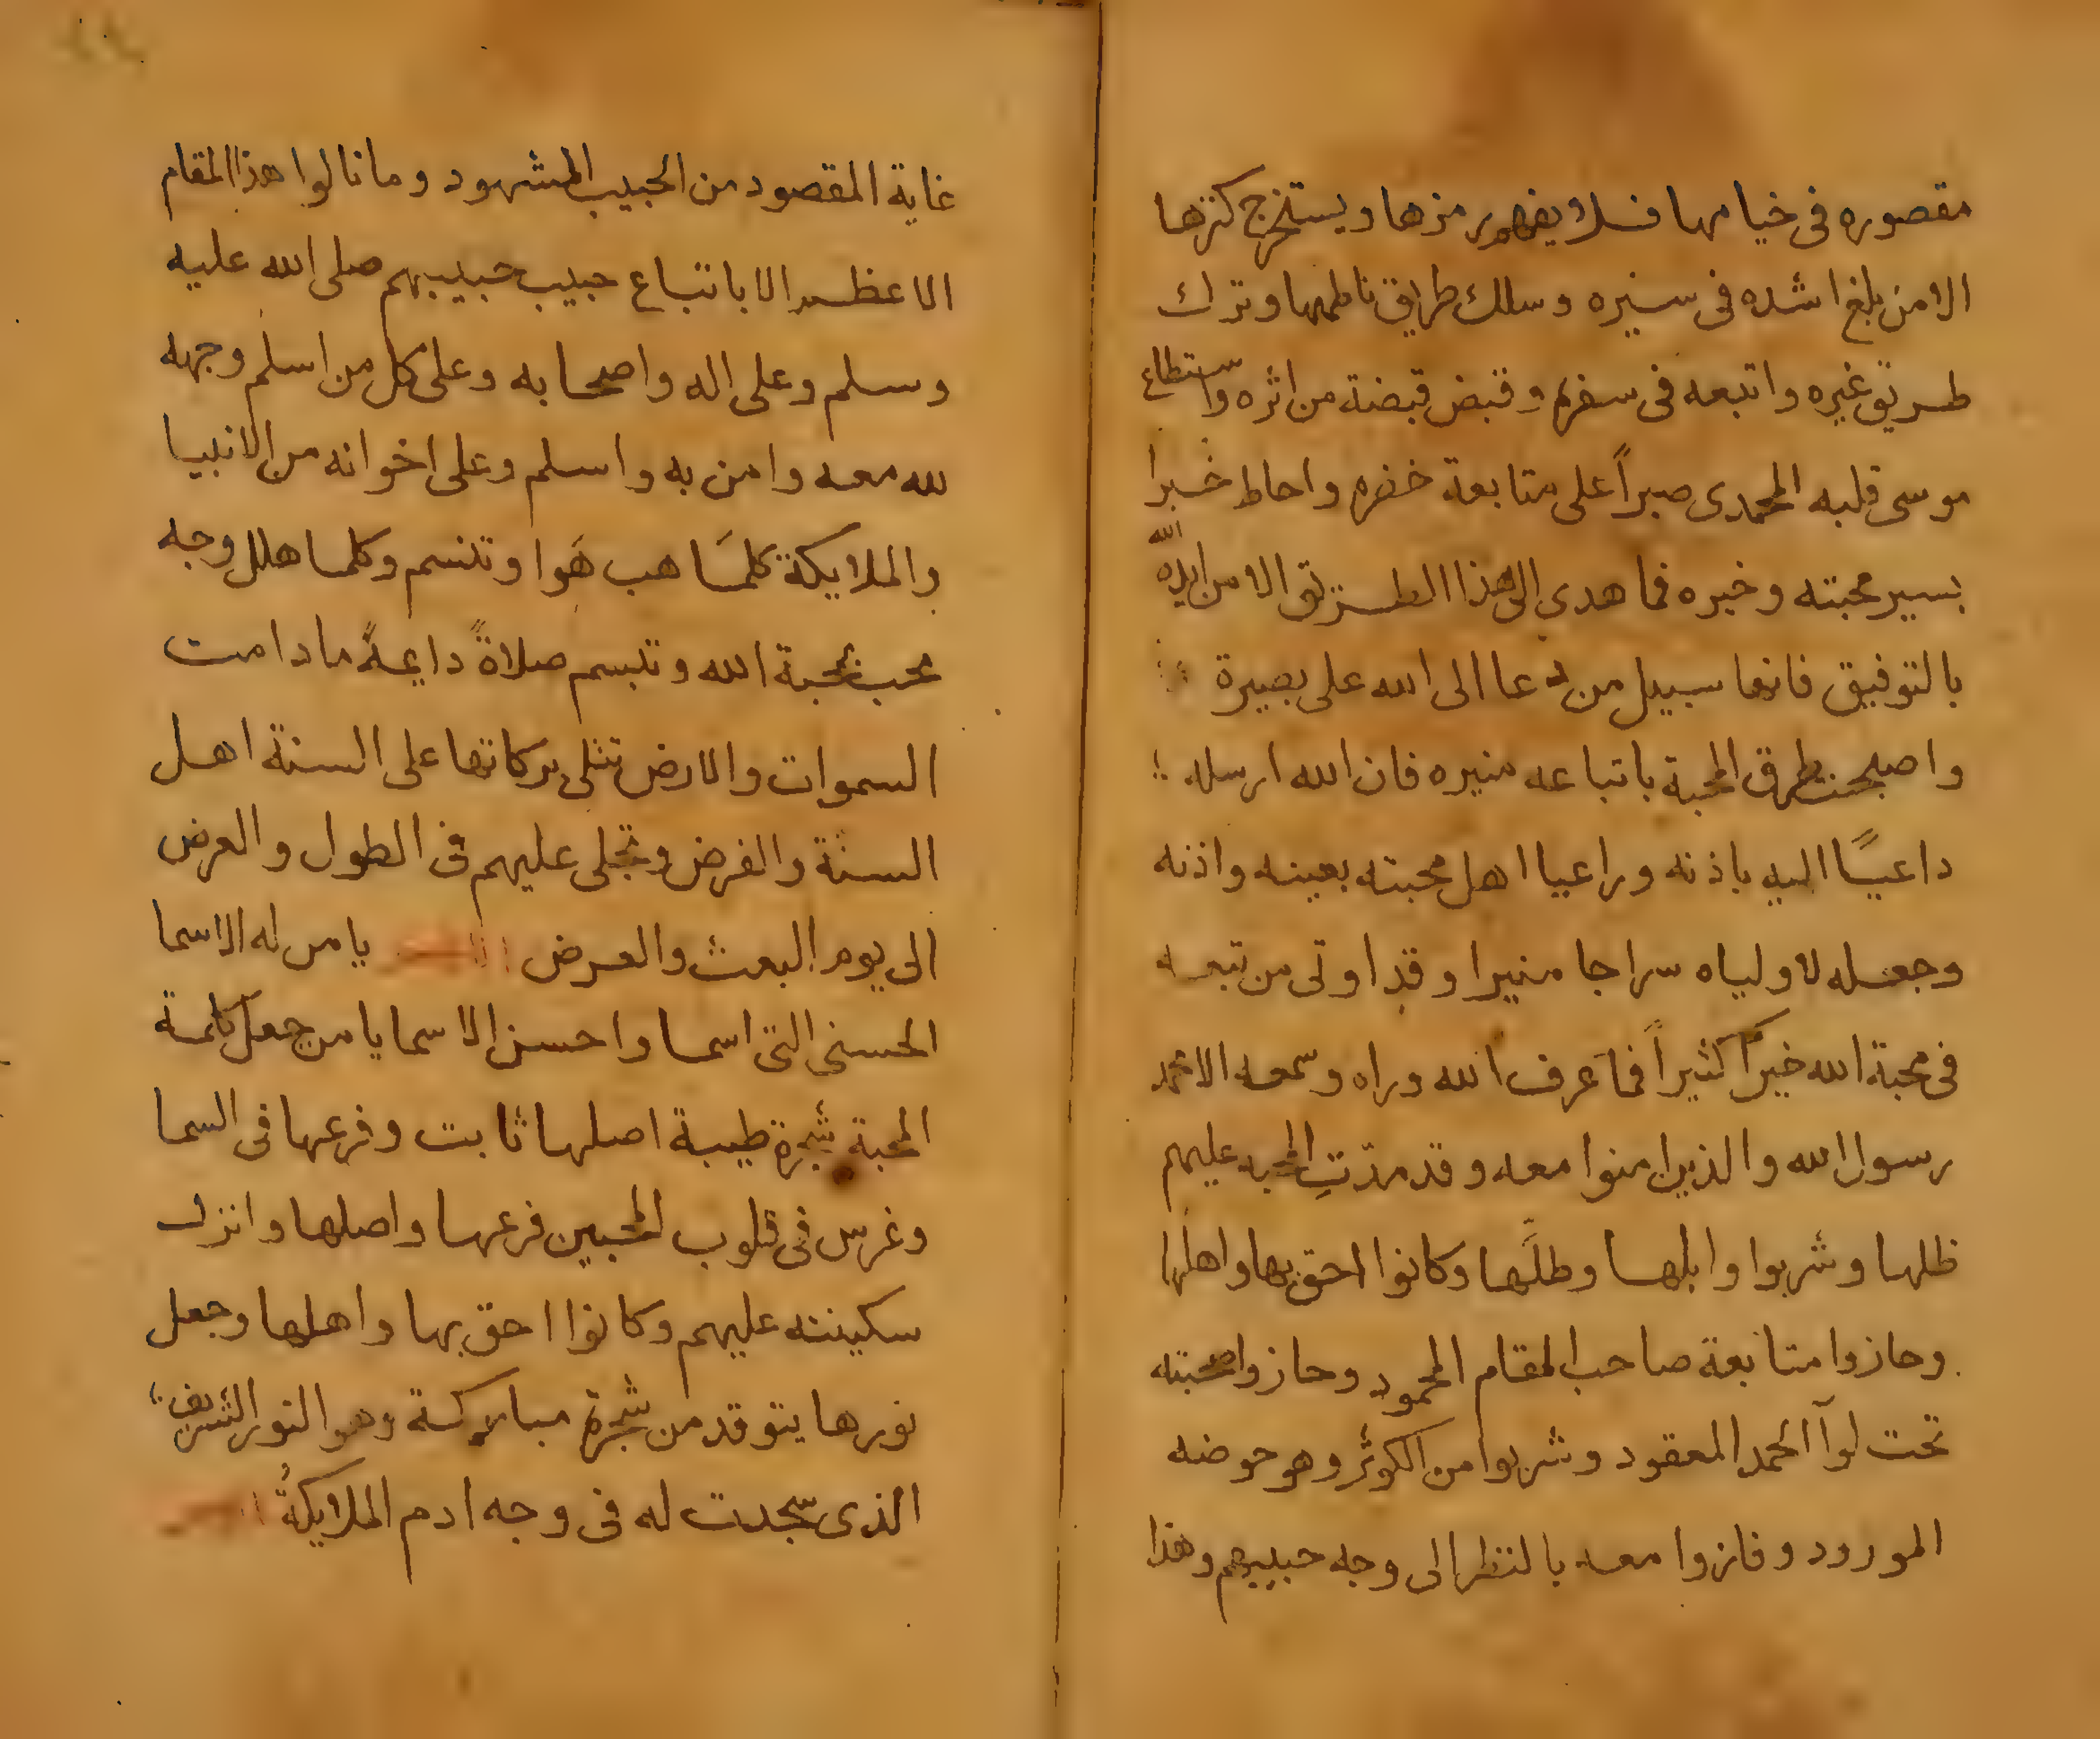 مقصوره فى خيامها فلا يفهم رمزها ويستخرج كنزها
الا من بلغ اشده فى سيره وسلك طريق ناظمها وترك
طريق غيره واتبعه فى سفره وقبض قبضة من اثره واستطاع
موسى قلبه المحمدى صبراً على متابعة خضره واحاط خبرا
بسير محبته وخبره فما هدى الى هذا الطريق الا من ايده الله
بالتوفيق فانها سبيل من دعا الى الله على بصيرة
واصبحت طرق المحبة باتباعه منيره فان الله ارسله
داعيًا اليه باذنه وراعيا اهل محبته بعينه واذنه
وجعله لاولياه سراجا منيرا وقد اوتى من تبعه
فى محبة الله خيرًا كثيراً فما عرف الله وراه وسمعه الا محمد
رسول الله والذين امنوا معه وقد مدّتِ المحبه عليهم
ظلها وشربوا وابلها وطلَّها وكانوا احق بها واهلها
وحازوا متابعة صاحب المقام المحمود وحازوا صحبته
تحت لوآ الحمد المعقود وشربوا من الكوثر وهو حوضه
المورود وفازوا معه بالنظر الى وجه حبيبهم وهذا
غاية المقصود من الحبيب المشهود وما نالوا هذا المقام
الاعظم الا باتباع حبيب حبيبهم صلى الله عليه
وسلم وعلى اله واصحابه وعلى كل من اسلم وجهه
لله معه وامن به واسلم وعلى اخوانه من الانبيا
والملايكة كلمَا هب هَوا وتنسم وكلما هلل وجه
محب بمحبة الله وتبسم صلاةً دايمةً ما دامت
السموات والارض تتلى بركاتها على السنة اهل
السنة والفرض وتجلى عليهم فى الطول والعرض
الى يوم البعث والعرض يا من له الاسما
الحسنى التى اسما واحسن الاسما يا من جعل كلمة
المحبة شجرة طيبة اصلها ثابت وفرعها فى السما
وغرس فى قلوب المحبين فرعها واصلها وانزل
سكينته عليهم وكانوا احق بها واهلها وجعل
نورها يتوقد من شجرة مباركة وهو النور الشريف
الذى سجدت له فى وجه ادم الملايكةُ